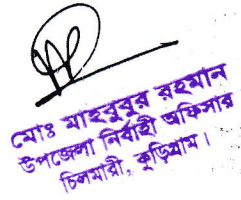 মোঃ মাহবুবুর রহমান
উপজেলা নির্বাহী অফিসার
চিলমারী, কুড়িগ্রাম।